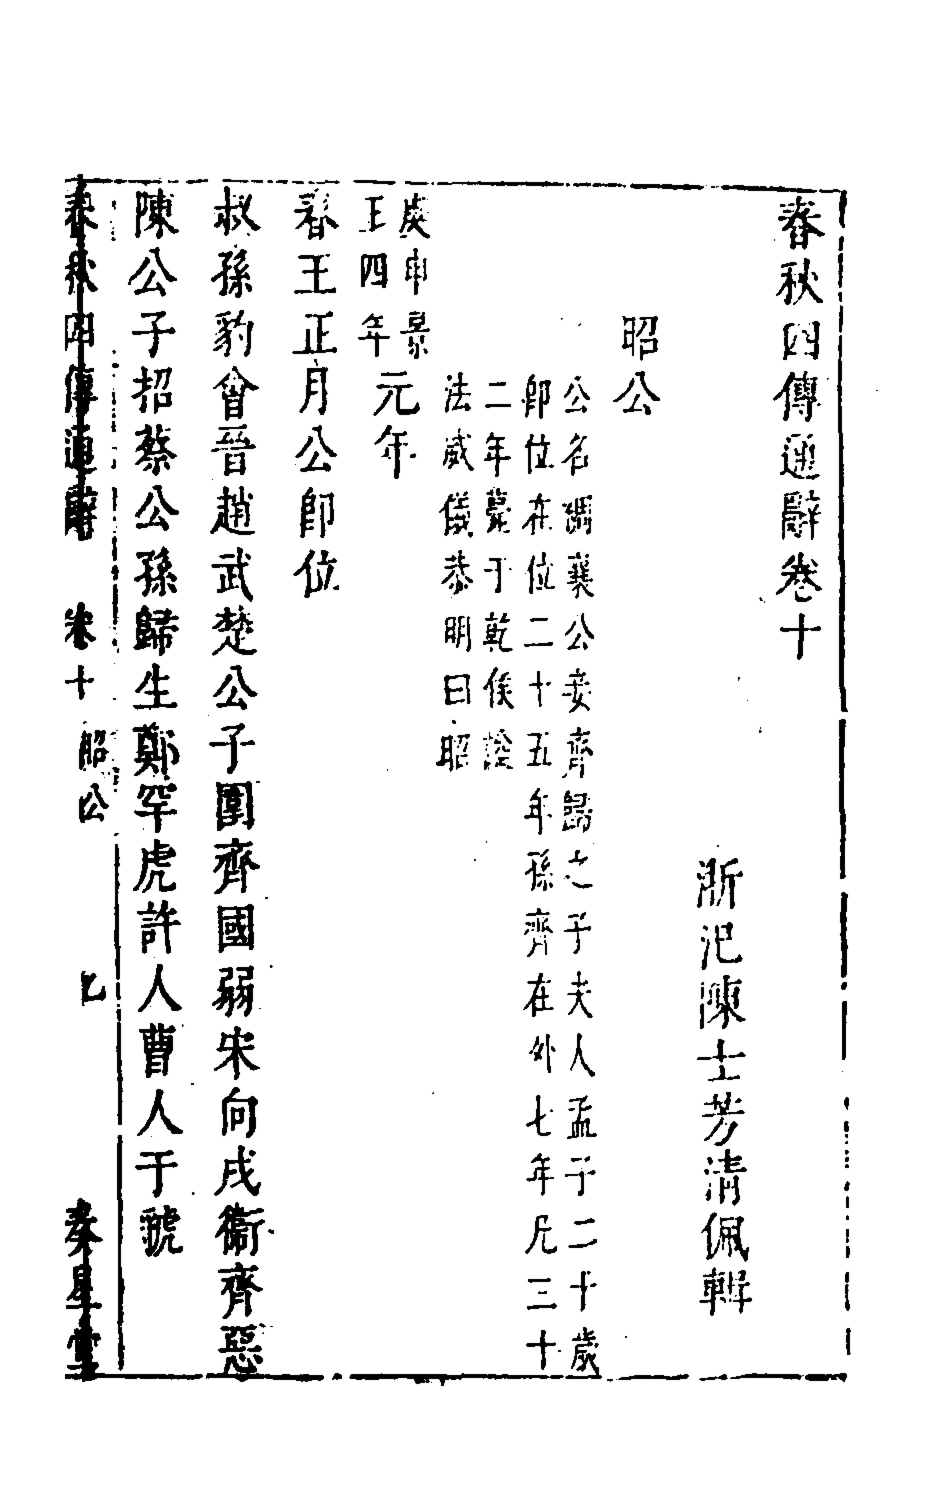 春秋四傳通辭卷十
浙汜陳士芳清佩輯
昭公
公名稠襄公妾齊歸之子夫人孟子二十歲
卽位在位二十五年孫齊在外七年凡三十
二年薨于乾侯諡
法威儀恭明曰昭
庚申景
王四年
元年
春王正月公卽位
叔孫豹會晉趙武楚公子圍齊國弱宋向戌衞齊惡
陳公子招蔡公孫歸生鄭罕虎許人曹人于虢
春秋四傳通辭 卷十 昭公 乙 奏星堂